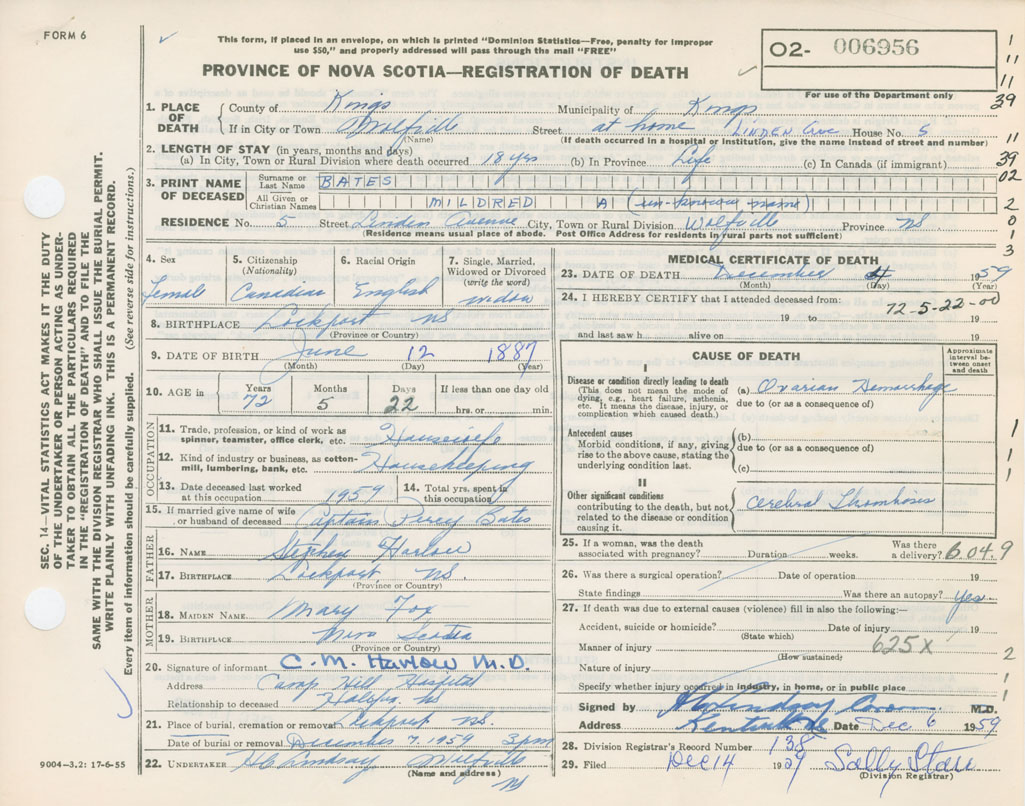 FORM 6
This form, if placed in an envelope, on which is printed "Dominion Statistics—Free, penalty for improper
use $50," and properly addressed will pass through the mail "FREE"
02- 006956
PROVINCE OF NOVA SCOTIA—REGISTRATION OF DEATH
For use of the Department only
1. PLACE OF DEATH County of Kings Municipality of Kings
If in City or Town Wolfville Street at home LINDEN Ave House No. 5
(Name) (If death occurred in a hospital or institution, give the name instead of street and number)
2. LENGTH OF STAY (in years, months and days)
(a) In City, Town or Rural Division where death occurred 18 yrs (b) In Province Life (c) In Canada (if immigrant)
3. PRINT NAME OF DECEASED Surname or Last Name BATES
All Given or Christian Names MILDRED A (un-known name)
RESIDENCE No. 5 Street Linden Avenue City, Town or Rural Division Wolfville Province NS
(Residence means usual place of abode. Post Office Address for residents in rural parts not sufficient)
4. Sex Female
5. Citizenship (Nationality) Canadian
6. Racial Origin English
7. Single, Married, Widowed or Divorced (write the word) widow
8. BIRTHPLACE Lockport NS
(Province or Country)
9. DATE OF BIRTH June 12 1887
(Month) (Day) (Year)
10. AGE in Years 72 Months 5 Days 22 If less than one day old hrs. or min.
OCCUPATION
11. Trade, profession, or kind of work as spinner, teamster, office clerk, etc. Housewife
12. Kind of industry or business, as cotton-mill, lumbering, bank, etc. Housekeeping
13. Date deceased last worked at this occupation 1959 14. Total yrs. spent in this occupation
15. If married give name of wife or husband of deceased Captain Percy Bates
FATHER
16. NAME Stephen Harlow
17. BIRTHPLACE Lockport NS.
(Province or Country)
MOTHER
18. MAIDEN NAME Mary Fox
19. BIRTHPLACE Nova Scotia
(Province or Country)
20. Signature of informant C. M. Harlow M.D.
Address Camp Hill Hospital
Relationship to deceased Halifax NS
21. Place of burial, cremation or removal Lockport NS.
Date of burial or removal December 7, 1959 3pm
22. UNDERTAKER HC Lindsay Wolfville
(Name and address) NS
MEDICAL CERTIFICATE OF DEATH
23. DATE OF DEATH December 4 1959
(Month) (Day) (Year)
24. I HEREBY CERTIFY that I attended deceased from:
72-5-22-00
19 to 19
and last saw h alive on 19
CAUSE OF DEATH
Approximate interval between onset and death
I
Disease or condition directly leading to death
(This does not mean the mode of dying, e.g., heart failure, asthenia, etc. It means the disease, injury, or complication which caused death.)
(a) Ovarian Hemorrhage
due to (or as a consequence of)
Antecedent causes
Morbid conditions, if any, giving rise to the above cause, stating the underlying condition last.
(b)
due to (or as a consequence of)
(c)
II
Other significant conditions
contributing to the death, but not related to the disease or condition causing it.
Cerebral Thrombosis
25. If a woman, was the death associated with pregnancy? Duration weeks. Was there a delivery? 6.04.9
26. Was there a surgical operation? Date of operation 19
State findings Was there an autopsy? Yes
27. If death was due to external causes (violence) fill in also the following:—
Accident, suicide or homicide? Date of injury 19
(State which)
Manner of injury 625X
(How sustained)
Nature of injury
Specify whether injury occurred in industry, in home, or in public place
Signed by M.D.
Address Kentville Date Dec 6 1959
28. Division Registrar's Record Number 138
29. Filed Dec 14 1959 Sally Starr
(Division Registrar)
SEC. 14—VITAL STATISTICS ACT MAKES IT THE DUTY
OF THE UNDERTAKER OR PERSON ACTING AS UNDER-
TAKER TO OBTAIN ALL THE PARTICULARS REQUIRED
IN THE "REGISTRATION OF DEATH" AND TO FILE THE
SAME WITH THE DIVISION REGISTRAR WHO SHALL ISSUE THE BURIAL PERMIT.
WRITE PLAINLY WITH UNFADING INK. THIS IS A PERMANENT RECORD.
Every item of information should be carefully supplied. (See reverse side for instructions.)
9004—3.2: 17-6-55
1
11
11
39
11
39
02
2
0
1
3
1
1
1
2
1
1